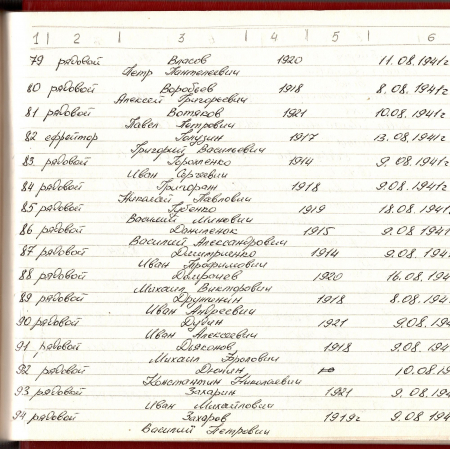 1 2 3 4 5 6
79 рядовой Власов 1920 11.08.1941г
Петр Пантелеевич
80 рядовой Воробьев 1918 8.08.1941г
Алексей Григорьевич
81 рядовой Вотяков 1921 10.08.1941г
Павел Петрович
82 ефрейтор 1917 13.08.1941г
Григорий Васильевич
83. рядовой Гороженко 1914 9.08.1941г
Иван Сергеевич
84 рядовой Григораж 1918 9.08.1941г
Николай Павлович
85 рядовой Губенко 1919 18.08.1941
Василий Минович
86. рядовой Даниленок 1915 9.08.1941
Василий Александрович
87 рядовой Дмитриенко 1914 9.08.1941
Иван Трофимович
88 рядовой 1920 16.08.194
Михаил Викторович
89 рядовой Дружинин 1918 8.08.194
Иван Андреевич
90 рядовой Дубин 1921 9.08.194
Иван Алексеевич
91. рядовой Дьяконов 1918 9.08.194
Михаил Фролович
92 рядовой Дюнин 10.08.19
Константин Николаевич
93 рядовой Захарин 1921 9.08.194
Иван Михайлович
94 рядовой Захаров 1919г 9.08.194
Василий Петрович